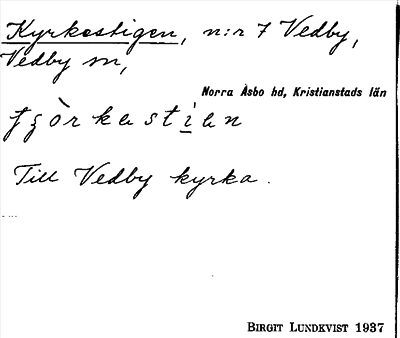 Kyrkestigen, n:r 7 Vedby,
Vedby sn,
Norra Åsbo hd, Kristianstads län
Till Vedby kyrka.
BIRGIT LUNDKVIST 1937